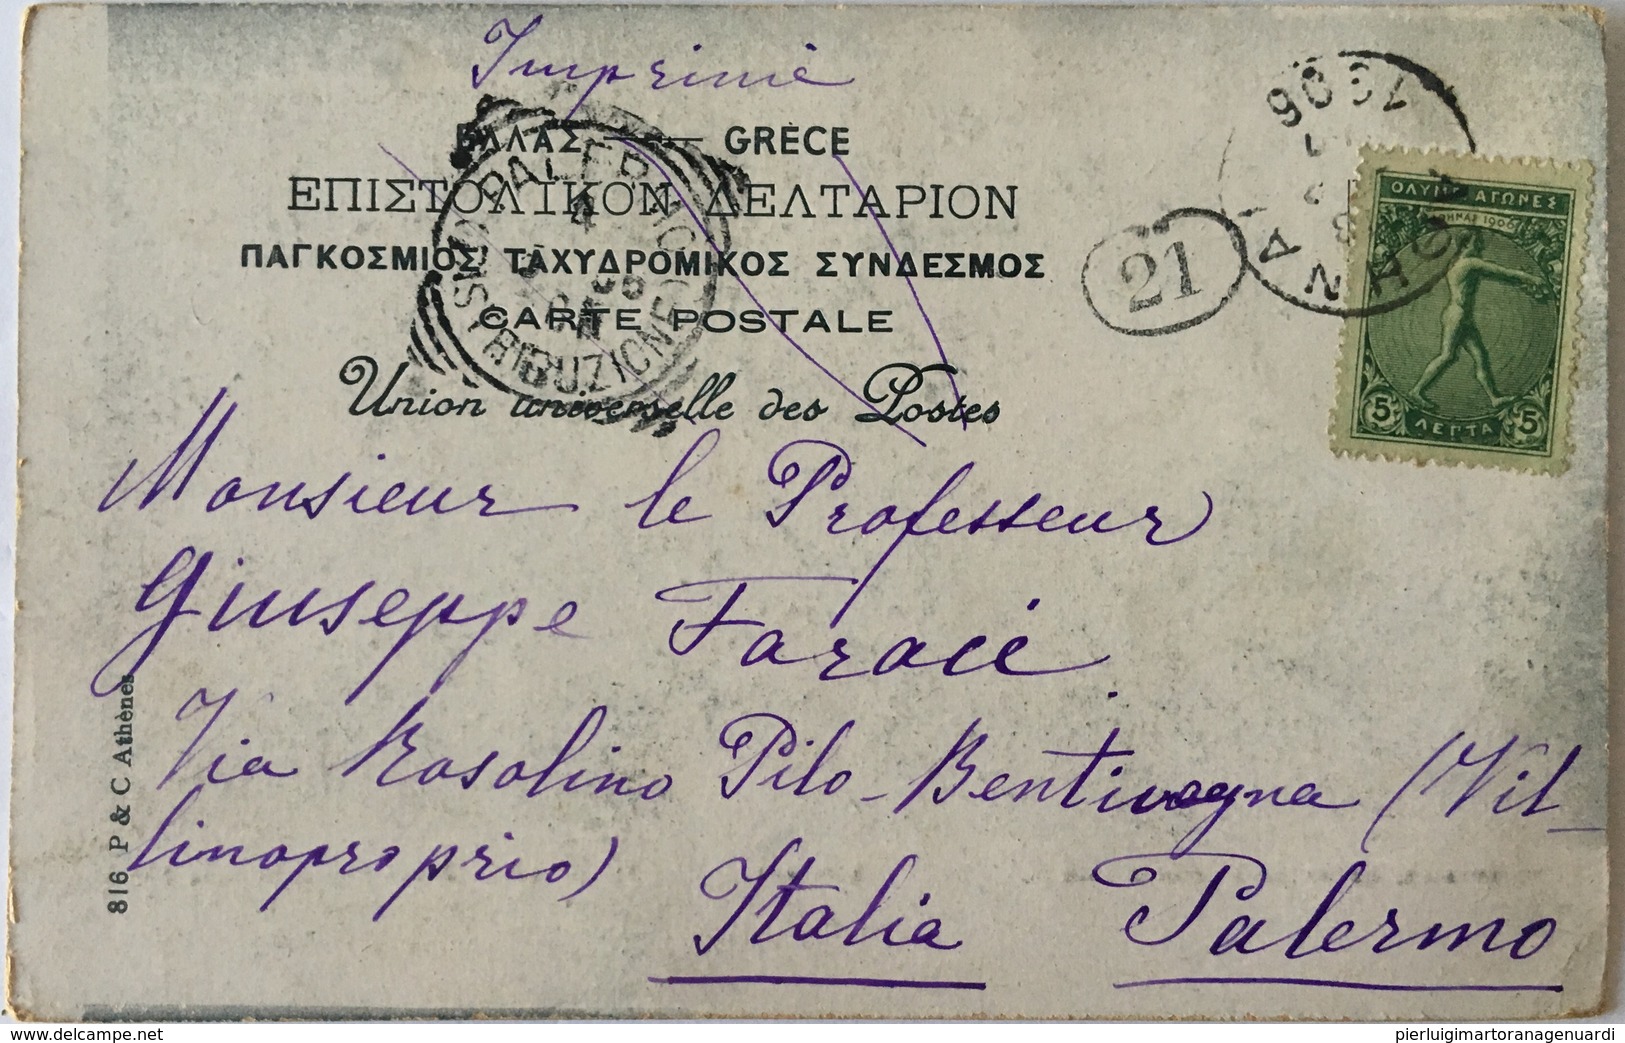 Imprimé
ΕΛΛΑΣ — GRÈCE
ΕΠΙΣΤΟΛΙΚΟΝ ΔΕΛΤΑΡΙΟΝ
ΠΑΓΚΟΣΜΙΟΣ ΤΑΧΥΔΡΟΜΙΚΟΣ ΣΥΝΔΕΣΜΟΣ
CARTE POSTALE
Union universelle des Postes
1906
ΑΘΗΝΑ
21
ΟΛΥΜΠ. ΑΓΩΝΕΣ
ΑΘΗΝΑΙ 1906
5 ΛΕΠΤΑ 5
PALERMO
DISTRIBUZIONE
Monsieur le Professeur
Giuseppe Faraci.
Via Rosolino Pilo - Bentivogna (Vil-
linoproprio)
Italia Palermo
816 P & C Athènes
pierluigimartoranagenuardi